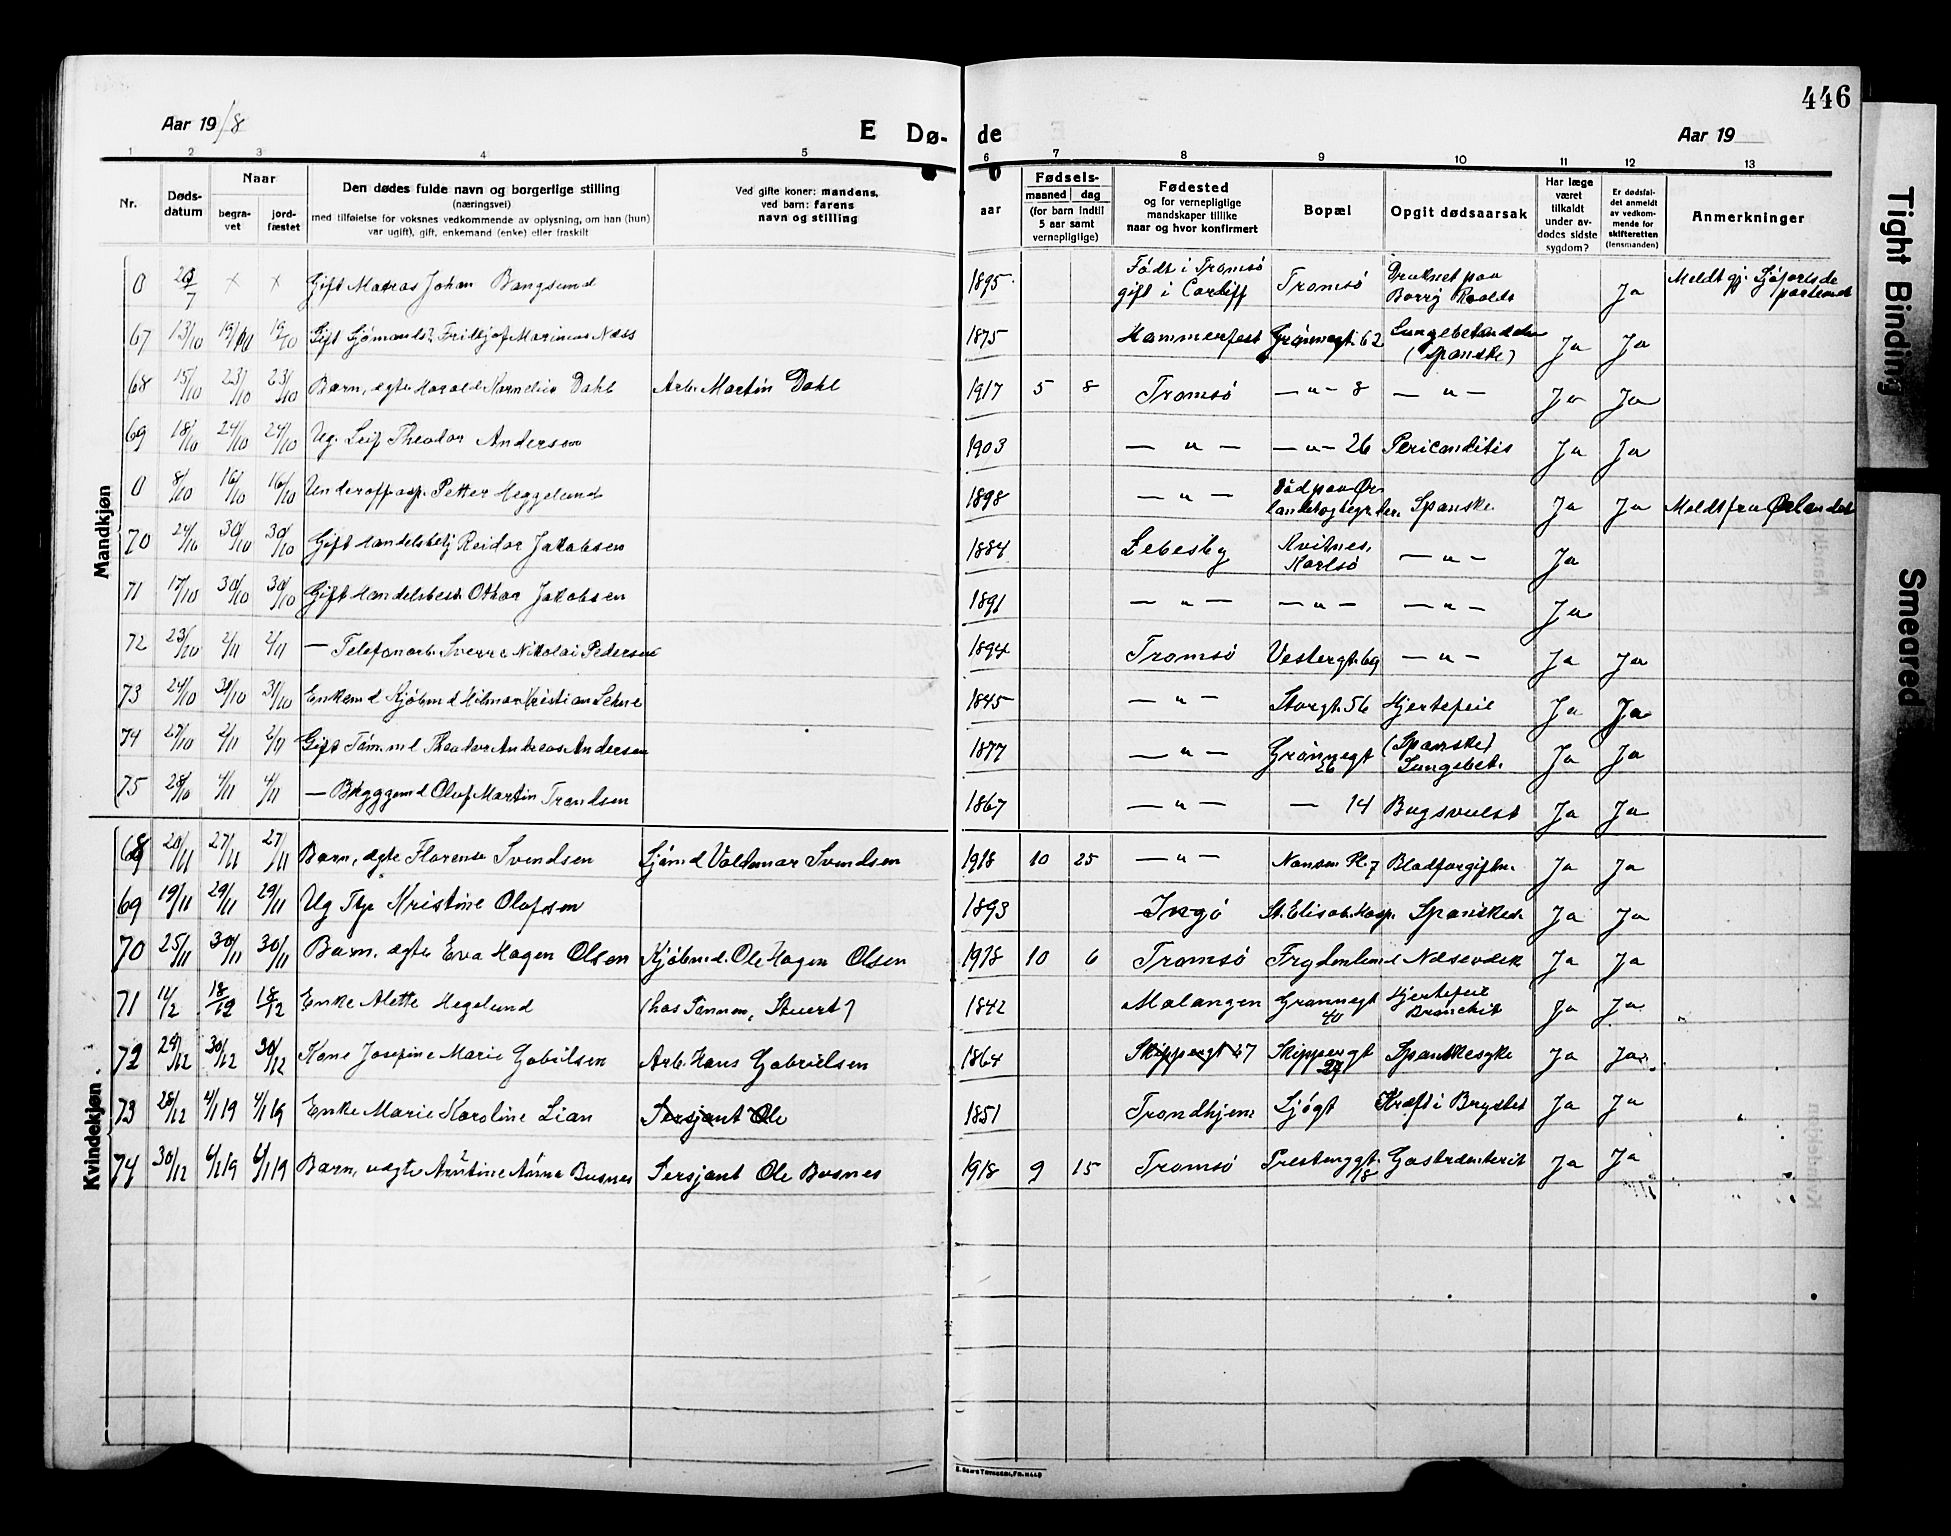 446
Aar 1918
E Dø-de
Aar 19
1 2 3 4 5 6 7 8 9 10 11 12 13
Nr. Døds-datum Naar begra-vet jord-fæstet
Den dødes fulde navn og borgerlige stilling
(næringsvei)
med tilføielse for voksnes vedkommende av oplysning, om han (hun)
var ugift, gift, enkemand (enke) eller fraskilt
Ved gifte koner: mandens,
ved barn: farens
navn og stilling
Fødsels-
aar maaned dag
(for barn indtil
5 aar samt
vernepligtige)
Fødested
og for vernepligtige
mandskaper tillike
naar og hvor konfirmert
Bopæl
Opgit dødsaarsak
Har læge
været
tilkaldt
under av-
dødes sidste
sygdom?
Er dødsfal-
det anmeldt
av vedkom-
mende for
skifteretten
(lensmanden)
Anmerkninger
Mandkjøn
0 /7 × × Gift Matros Johan Bangsund 1895 Født i Tromsö gift i Cardiff Tromsö Druknet paa Ja Meldt gj. Sjøfartsde
67 13/10 19/10 19/10 Gift Sjömand Frithjof Marinius Næss 1875 Hammerfest Grönnegt. 62 Lungebetændelse (Spanske) Ja Ja
68 15/10 23/10 23/10 Barn, ægte Harald Kornelius Dahl Arb. Martin Dahl 1917 5 8 Tromsö — " — 8 — " — Ja Ja
69 18/10 24/10 24/10 Ug. Leif Theodor Andersen 1903 — " — — " — 26 Pericarditis Ja Ja
0 8/10 16/10 16/10 Underoff.asp. Petter Heggelund 1898 — " — Död paa Ør- Spanske. Ja Ja Meldt fra Ørlandet
70 24/10 30/10 30/10 Gift Handelsbetj Reidar Jakobsen 1884 Lebesby Kvitnes, Karlsö — " — Ja
71 17/10 30/10 30/10 Gift Handelsbest. Othar Jakobsen 1891 — " — — " — — " — Ja
72 23/10 2/11 2/11 — Telefonarb. Sverre Nikolai Pedersen 1894 Tromsö Vestergt. 69 — " — Ja Ja
73 24/10 31/10 31/10 Enkemd Kjöbmd Hilmar Kristian Lehne 1845 — " — Storgt. 56 Hjertefeil Ja Ja
74 27/10 2/11 2/11 Gift Tömml Theodor Andreas Andersen 1877 — " — Grönnegt 26 (Spanske) Lungebet. Ja Ja
75 28/10 4/11 4/11 — Byggmd Olaf Martin Trondsen 1867 — " — — 14 Bugsvulst Ja Ja
Kvindekjøn.
68 20/11 27/11 27/11 Barn, ægte Florense Svendsen Sjömd Valdemar Svendsen 1918 10 25 — " — Nansen Pl. 7 Blodforgiftn. Ja Ja
69 19/11 29/11 29/11 Ug Tje Kristine Olafsen 1893 Ingö St. Elisab. Hosp. Spanskes. Ja Ja
70 25/11 30/11 30/11 Barn, ægte Eva Hagen Olsen Kjöbmd. Ole Hagen Olsen 1918 10 6 Tromsö Frydenlund Ja Ja
71 11/12 18/12 18/12 Enke Alette Hegelund 1842 Malangen Grønnegt 40 Hjertefeil Bronchit Ja Ja
72 24/12 30/12 30/12 Kone Josefine Marie Gabrilsen Arb. Hans Gabrielsen 1864 Skippergt 27 Skippergt 27 Spanskesyke Ja Ja
73 28/12 4/1 19 4/1 19 Enke Marie Karoline Lian Sersjant Ole 1851 Trondhjem Sjögt Kræft i Brystet Ja Ja
74 30/12 6/1 19 6/1 19 Barn, uægte Arntine Anna Busnes Sersjant Ole Bosnes 1918 9 15 Tromsö Prestenggt. 18 Gastroenterit Ja Ja
Tight Binding
Smeared